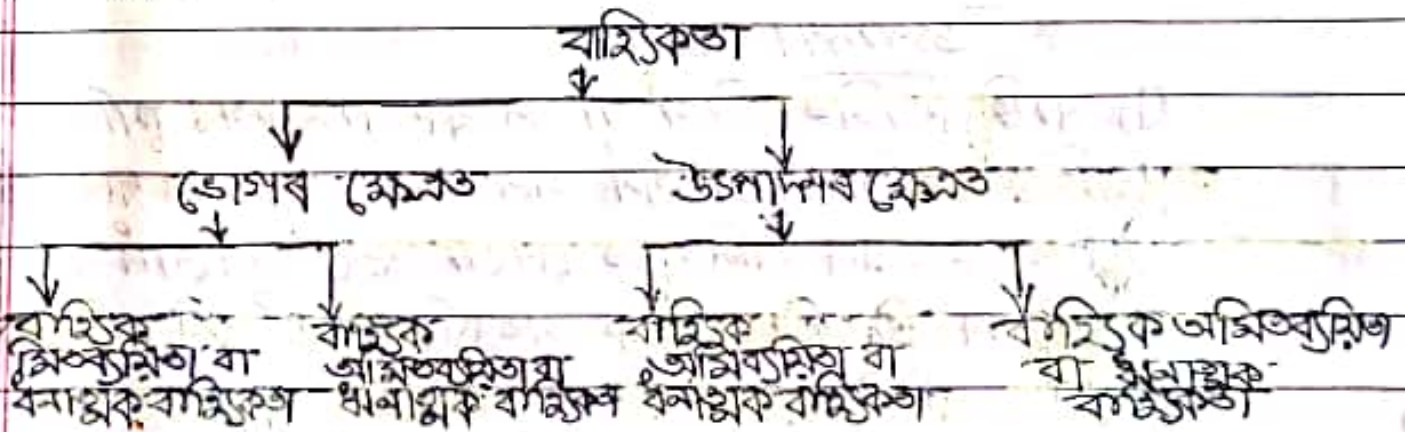 বাহ্যিকতা
ভোগৰ ক্ষেত্ৰত
উৎপাদনৰ ক্ষেত্ৰত
বাহ্যিক
মিতব্যয়িতা বা
ধনাত্মক বাহ্যিকতা
বাহ্যিক
অমিতব্যয়িতা বা
ঋনাত্মক বাহ্যিকতা
বাহ্যিক
অমিব্যয়িতা বা
ধনাত্মক বাহ্যিকতা
বাহ্যিক অমিতব্যয়িতা
বা ঋনাত্মক
বাহ্যিকতা